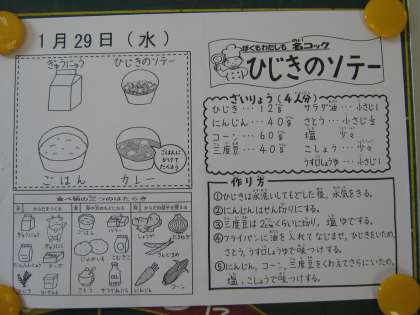 1月29日(水)
ぎゅうにゅう
ひじきのソテー
ごはん
カレー
ごはんに
かけて
たべよう
食べ物の三つのはたらき
ぎゅうにゅう
じゃがいも
こむぎこ
たまねぎ
さとう
にんじん
コーン
ぼくもわたしも 名コック
ひじきのソテー
ざいりょう(4人分)
ひじき…12g
サラダ油…小さじ1
にんじん…40g
コーン…60g
塩 少々
三度豆…40g
こしょう…少々
うす口しょうゆ…小さじ1
作り方
①ひじきは水洗いしてもどした後、水気をきる。
②にんじんはせん切りにする。
③三度豆は2cmくらいに切り、塩ゆでする。
④フライパンに油を入れてなじませ、ひじきをいため、
さとう、うす口しょうゆで味つけする。
⑤にんじん、コーン、三度豆をくわえてさらにいため、
塩、こしょうで味つけする。